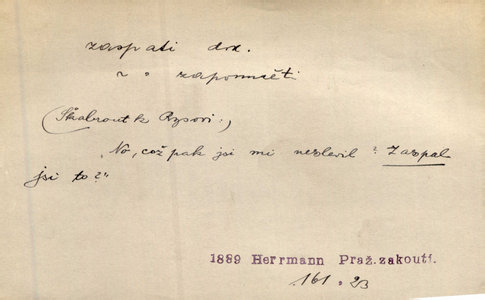 zaspati dok.
~ " zapomněti
(Škabrout k Rysovi:)
"No, což pak jsi mi neslevil? Zaspal
jsi to?"
1889 Herrmann Praž.zakoutí.
161 . 23